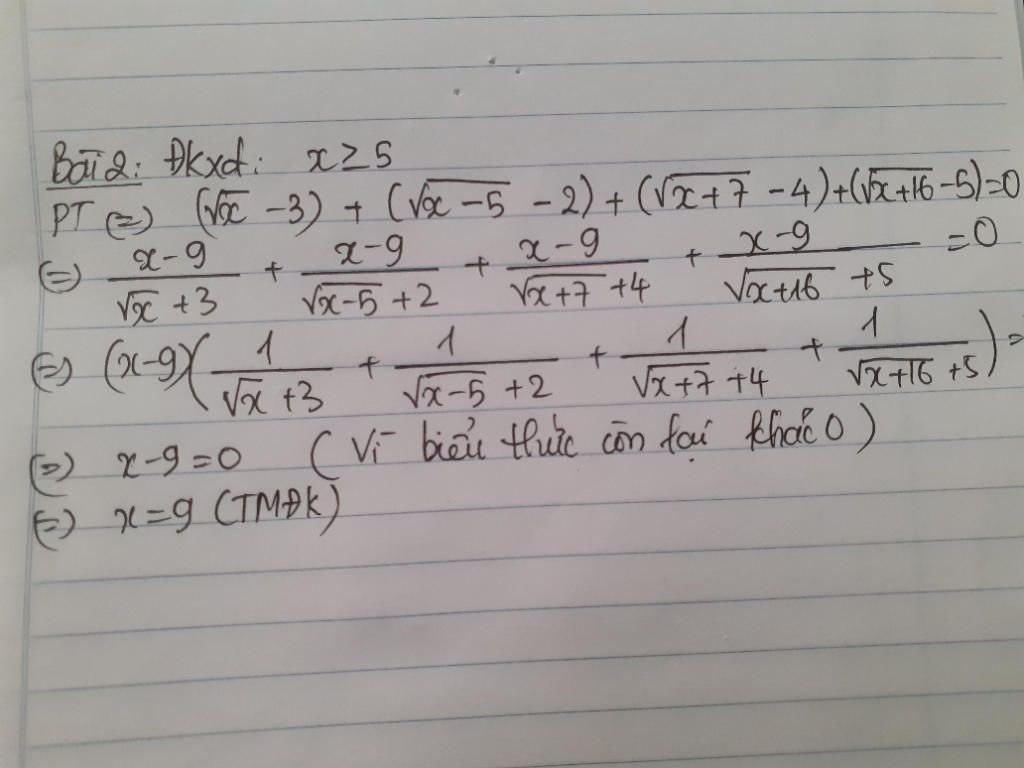 Bài 2: Đkxđ: x ≥ 5
PT ⇔ (√x - 3) + (√(x-5) - 2) + (√(x+7) - 4) + (√(x+16) - 5) = 0
⇔ (x-9)/(√x + 3) + (x-9)/(√(x-5) + 2) + (x-9)/(√(x+7) + 4) + (x-9)/(√(x+16) + 5) = 0
⇔ (x-9)(1/(√x + 3) + 1/(√(x-5) + 2) + 1/(√(x+7) + 4) + 1/(√(x+16) + 5)) =
⇔ x-9 = 0 (Vì biểu thức còn lại khác 0)
⇔ x = 9 (TMĐK)